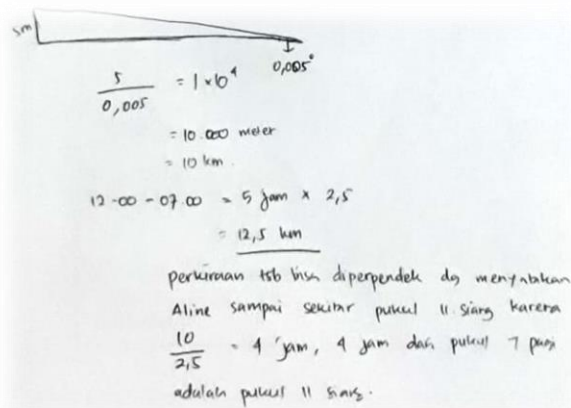 5m
0,005°
5 / 0,005 = 1 × 10⁴
= 10.000 meter
= 10 km.
12-00 - 07.00 = 5 jam × 2,5
= 12,5 km
perkiraan tsb bisa diperpendek dg menyatakan
Aline sampai sekitar pukul 11 siang karena
10 / 2,5 = 4 jam, 4 jam dari pukul 7 pagi
adalah pukul 11 siang.